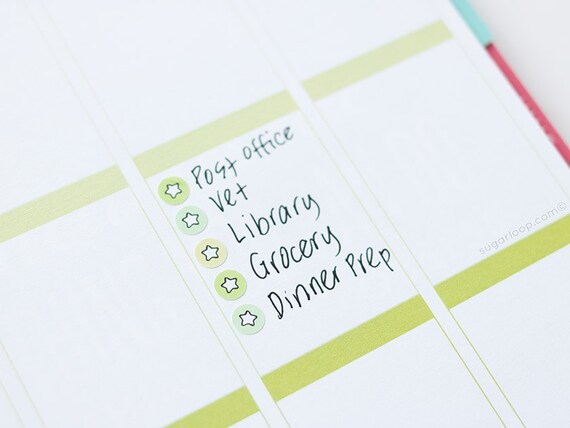 Post office
Vet
Library
Grocery
Dinner Prep
sugarloop.com©